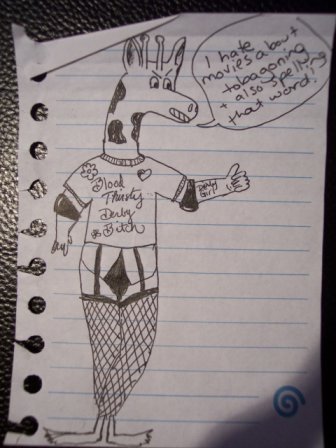 I hate
movies about
tobagoning
+ also spelling
that word!
Blood
Thirsty
Derby
Bitch
Derby
Girl